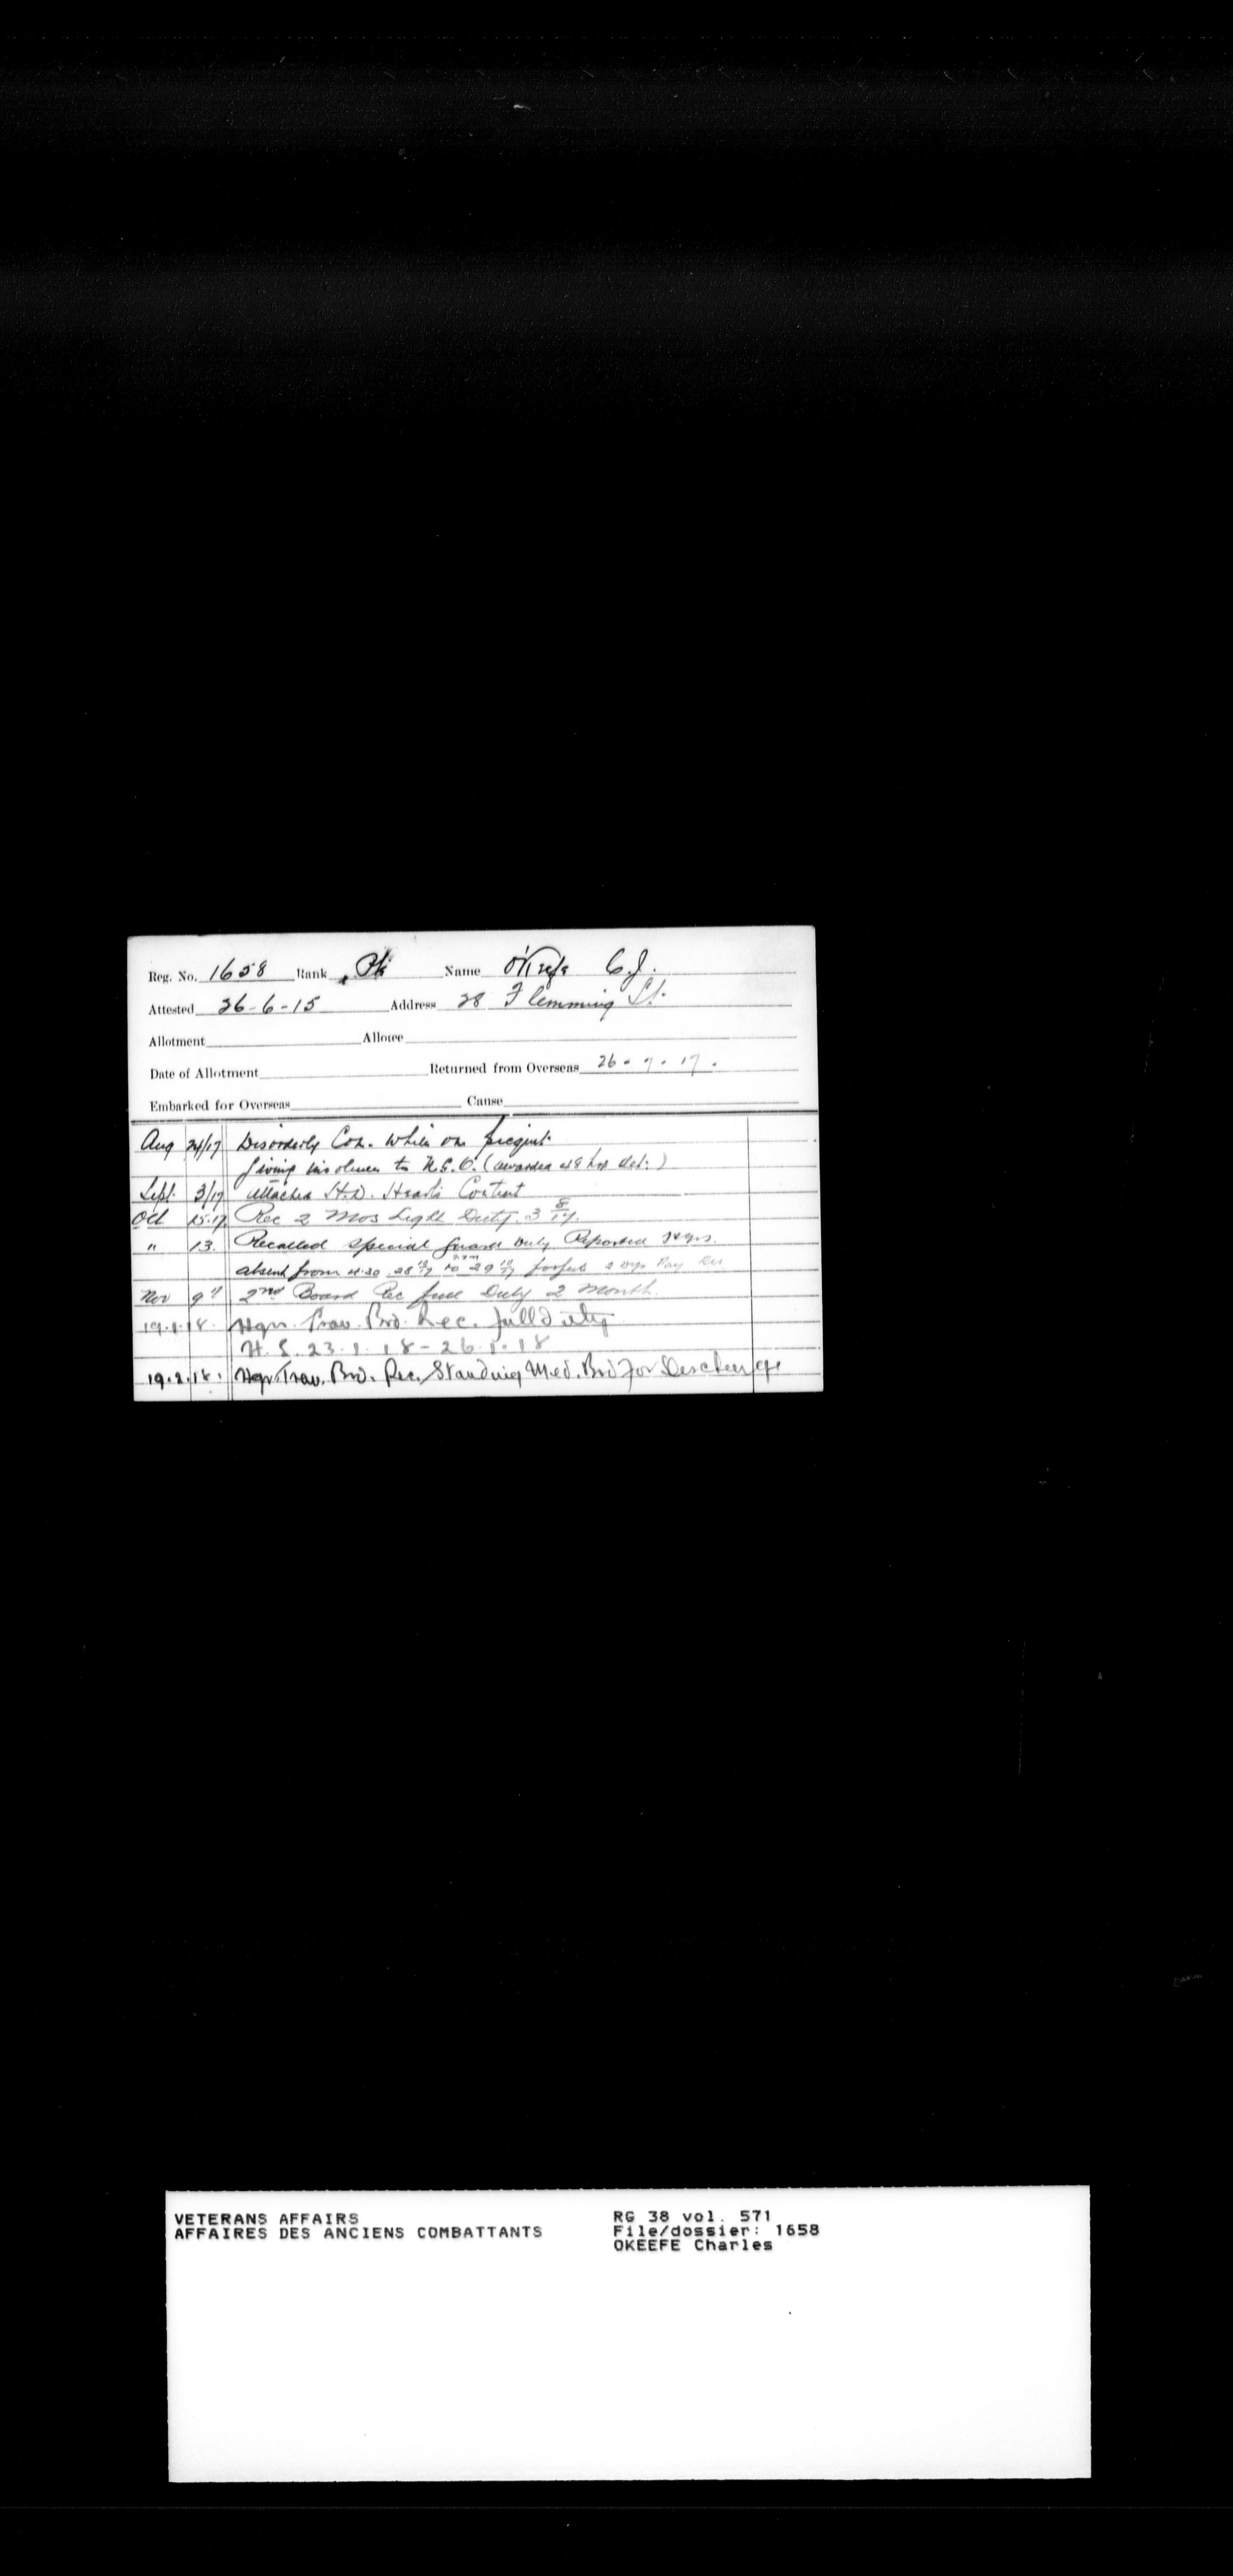 Reg. No. 1658 Rank Pte Name O'Keefe C.J.
Attested 26-6-15 Address 28 Flemming St.
Allotment Allotee
Date of Allotment Returned from Overseas 26-7-17.
Embarked for Overseas Cause
Aug 24/17 Disorderly Con. while on picquet.
giving insolence to N.C.O. (awarded 48 hrs det.)
Sept. 3/17 Attached H.D. Hearts Content
Oct 15.17 Rec 2 Mos Light Duty. 3 8/17.
" 13. Recalled special guard duty Reported
absent from 4.30 28 10/17 to 29 10/17 forfeit 2 dys Pay
Nov 9th 2nd Board Rec full Duty 2 Month.
19.1.18. Hqr. Trav. Brd. Rec. full duty
H.S. 23.1.18-26.1.18
19.2.18. Hqr Trav. Brd. Rec. Standing Med. Brd for Discharge
VETERANS AFFAIRS RG 38 vol. 571
AFFAIRES DES ANCIENS COMBATTANTS File/dossier: 1658
OKEEFE Charles